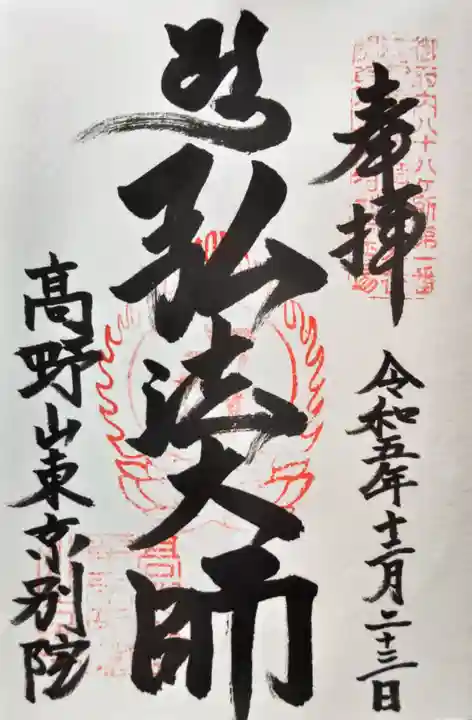 奉拝
御府内八十八ケ所第一番
令和五年十二月二十三日
弘法大師
高野山東京別院